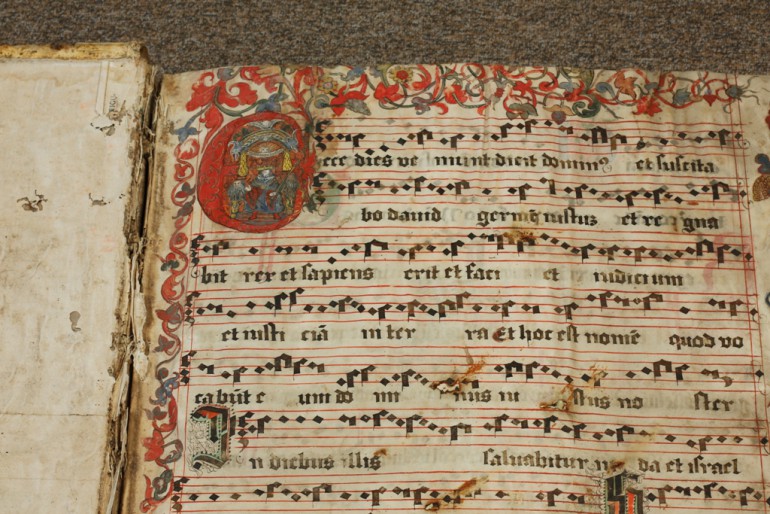 Ecce dies veniunt dicit domin⁹ et suscita
bo dauid germē iustuz et reg gna
bit rex et sapiens erit et faci et iudicium
et iusti ciā in ter ra Et hoc est nomē quod vo
cabūt e um do mi nus iu stus no ster
In diebus illis saluabitur iu da et israel